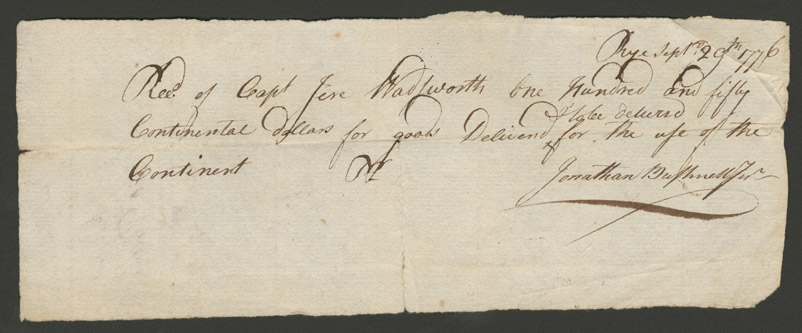 Rye Septr 29th 1776
Recd of Capt Jere Wadsworth One Hundred and fifty
& to be deliverd
Continental dollars for goods Deliverd ^ for the use of the
Continent
Jonathan Bushnell Junr